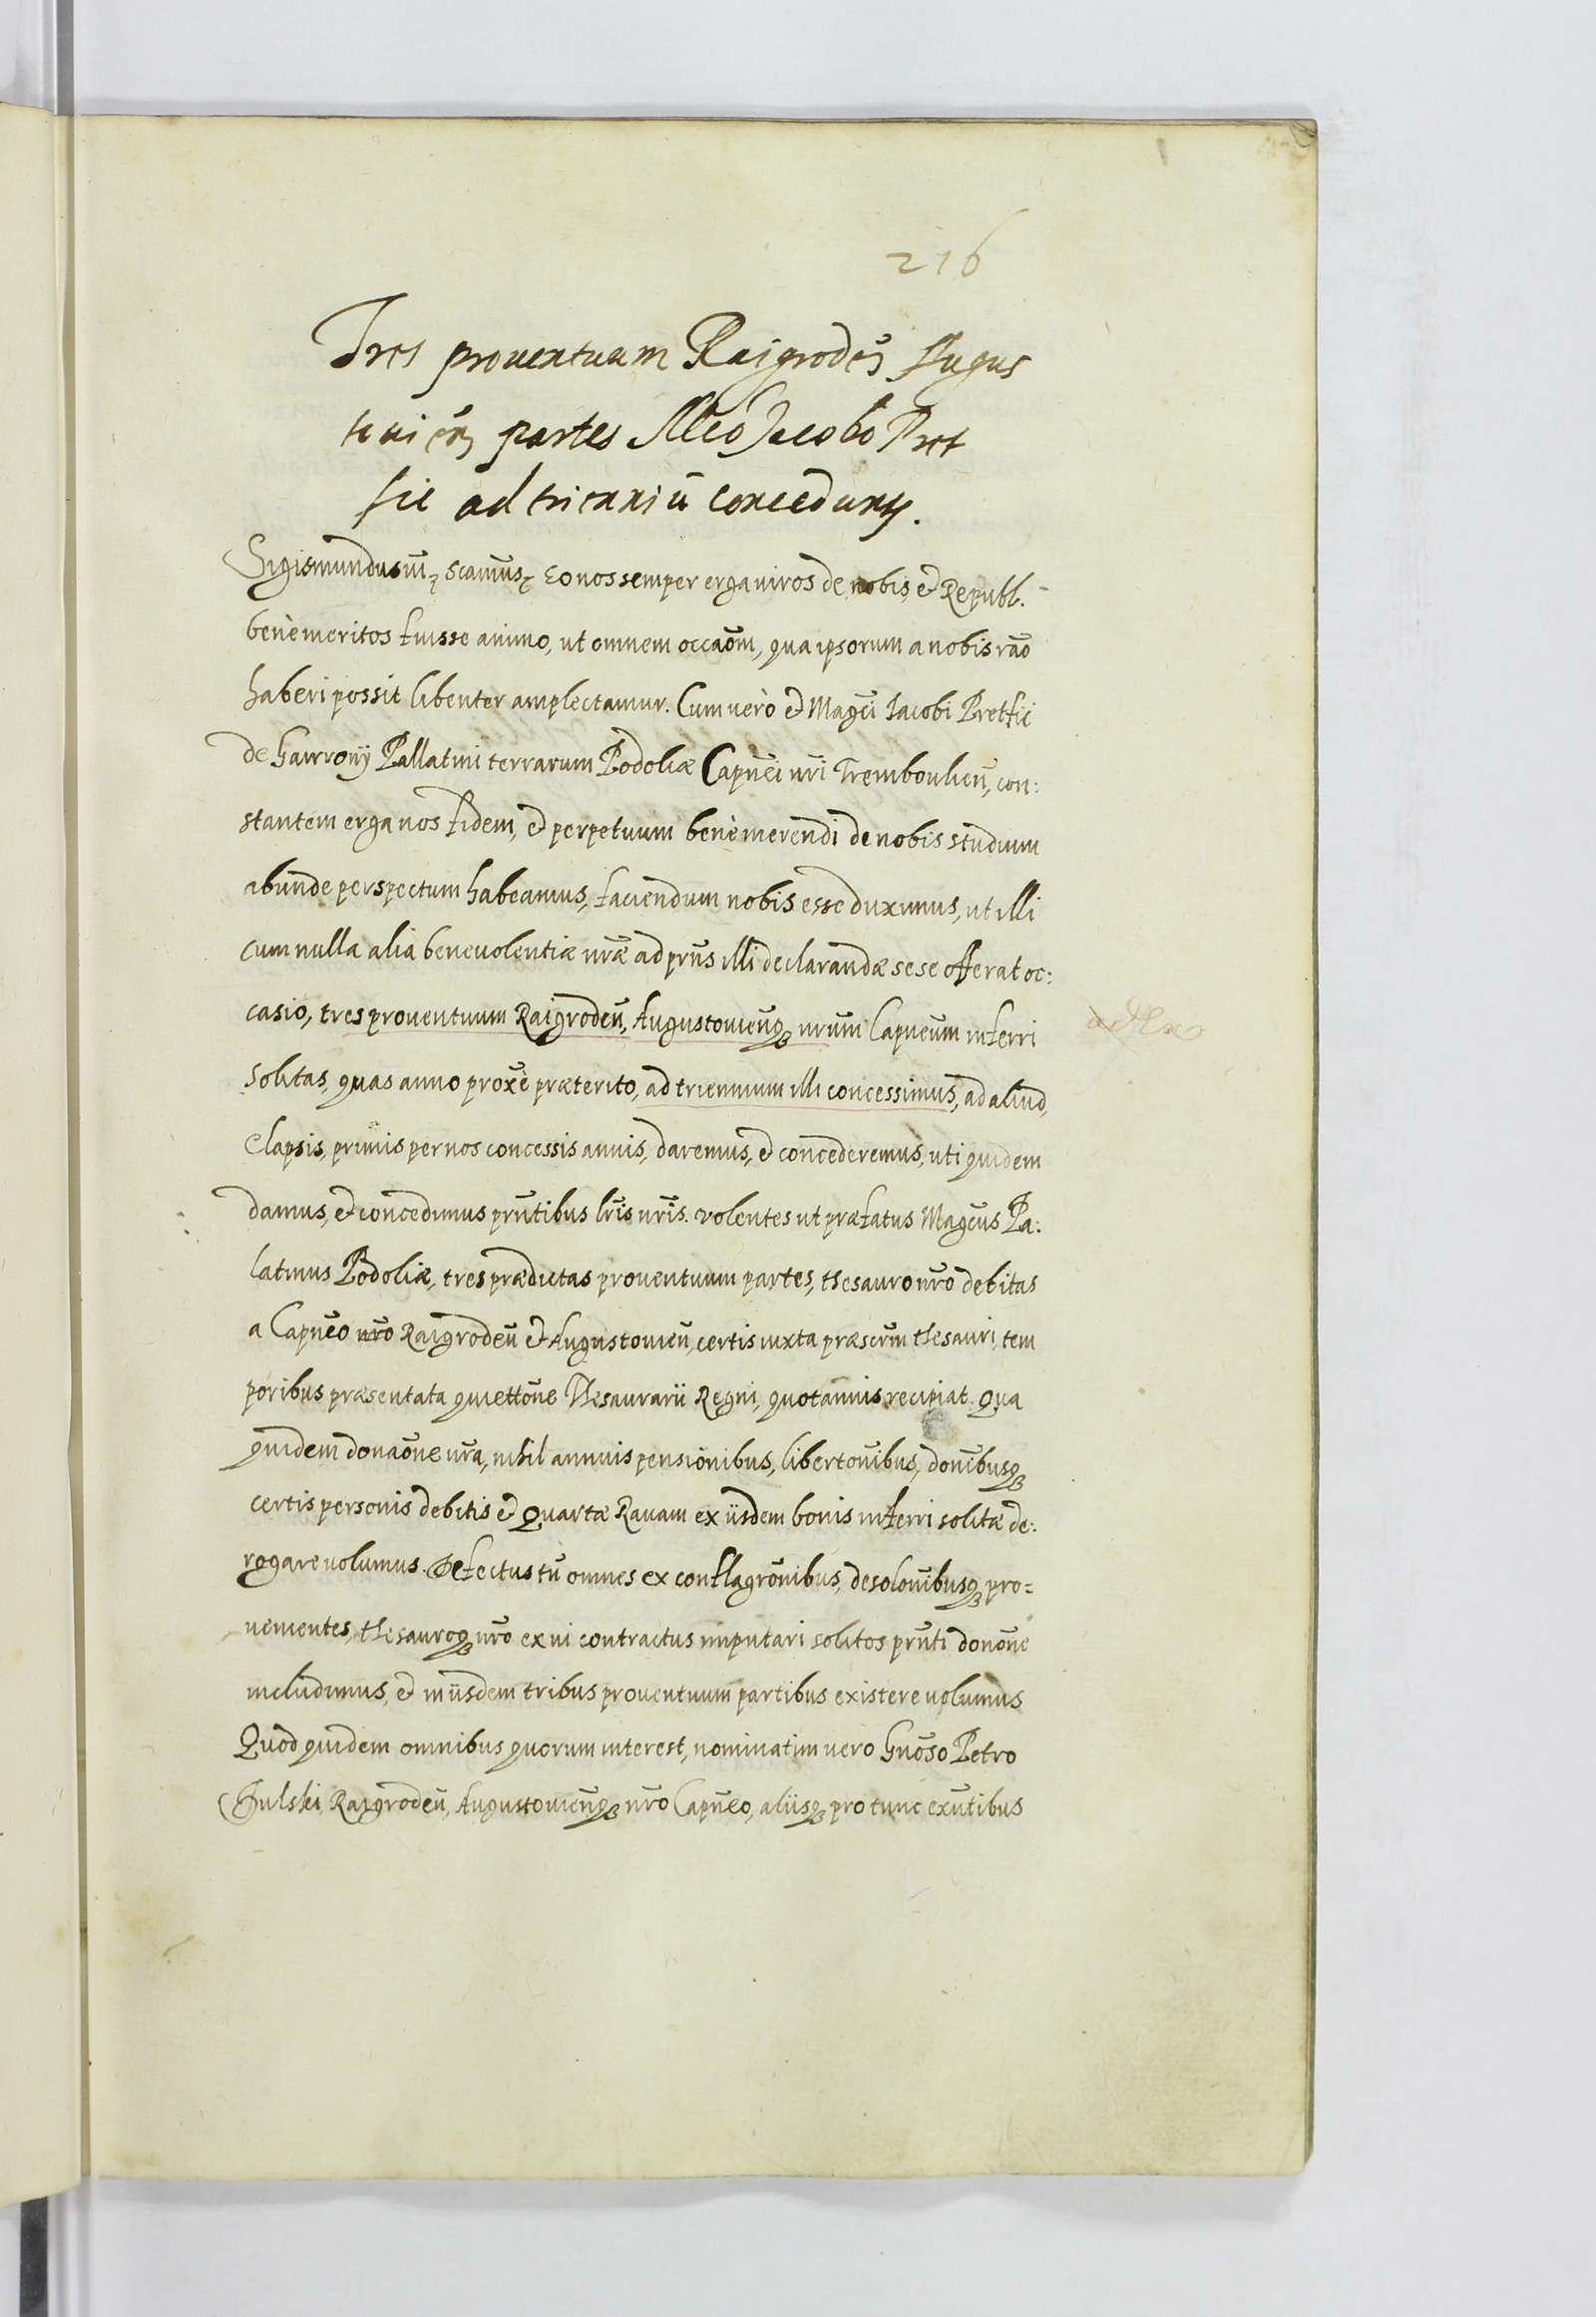 216
Tres proventuum Raigrodeñ Augus
tovieñ partes Mco Jacobo Pret
fic ad trienniū conceduntur.
Sigismundus III, Scamus, Eo nos semper erga viros de nobis, et Republ.
benè meritos fuisse animo, ut omnem occãom, qua ipsorum a nobis rãõ
haberi possit libenter amplectamur. Cum verò et Magci Iacobi Pretfic
de Gawrony Pallatini terrarum Podoliæ Capnei nri Tremboulien, con:
stantem erga nos fidem, et perpetuum benè merendi de nobis studium
abunde perspectum habeamus, faciendum nobis esse duximus, ut illi
cum nulla alia benevolentiæ nræ ad prns illi declarandæ sese offerat oc:
casio, tres proventuum Raigroden, Augustoviensq nrum Capneum inferri
solitas, quas anno proxè præterito, ad triennium illi concessimus, ad aliud,
elapsis, primis per nos concessis annis, daremus, et concederemus, uti quidem
damus, et concedimus prntibus lris nris. volentes ut præfatus Magcus Pa:
latinus Podoliæ, tres prædictas proventuum partes, thesauro nro debitas
a Capneo nro Raigroden et Augustovien, certis iuxta præscrm thesauri, tem
poribus præsentata quiettõne Thesaurarii Regni, quotannis recipiat. Qua
quidem donãone nra, nihil annuis pensionibus, libertonibus, donibusq
certis personis debitis et Quartæ Ravam ex iisdem bonis inferri solitæ de:
rogare volumus. Defectus tn omnes ex conflagronibus, desolonibusq pro=
venientes, thesauroq nro ex vi contractus imputari solitos prnti donone
includimus, et in iisdem tribus proventuum partibus existere volumus
Quod quidem omnibus quorum interest, nominatim vero Gnoso Petro
Dulski, Raigroden, Augustovienq nro Capneo, aliisq pro tunc exntibus